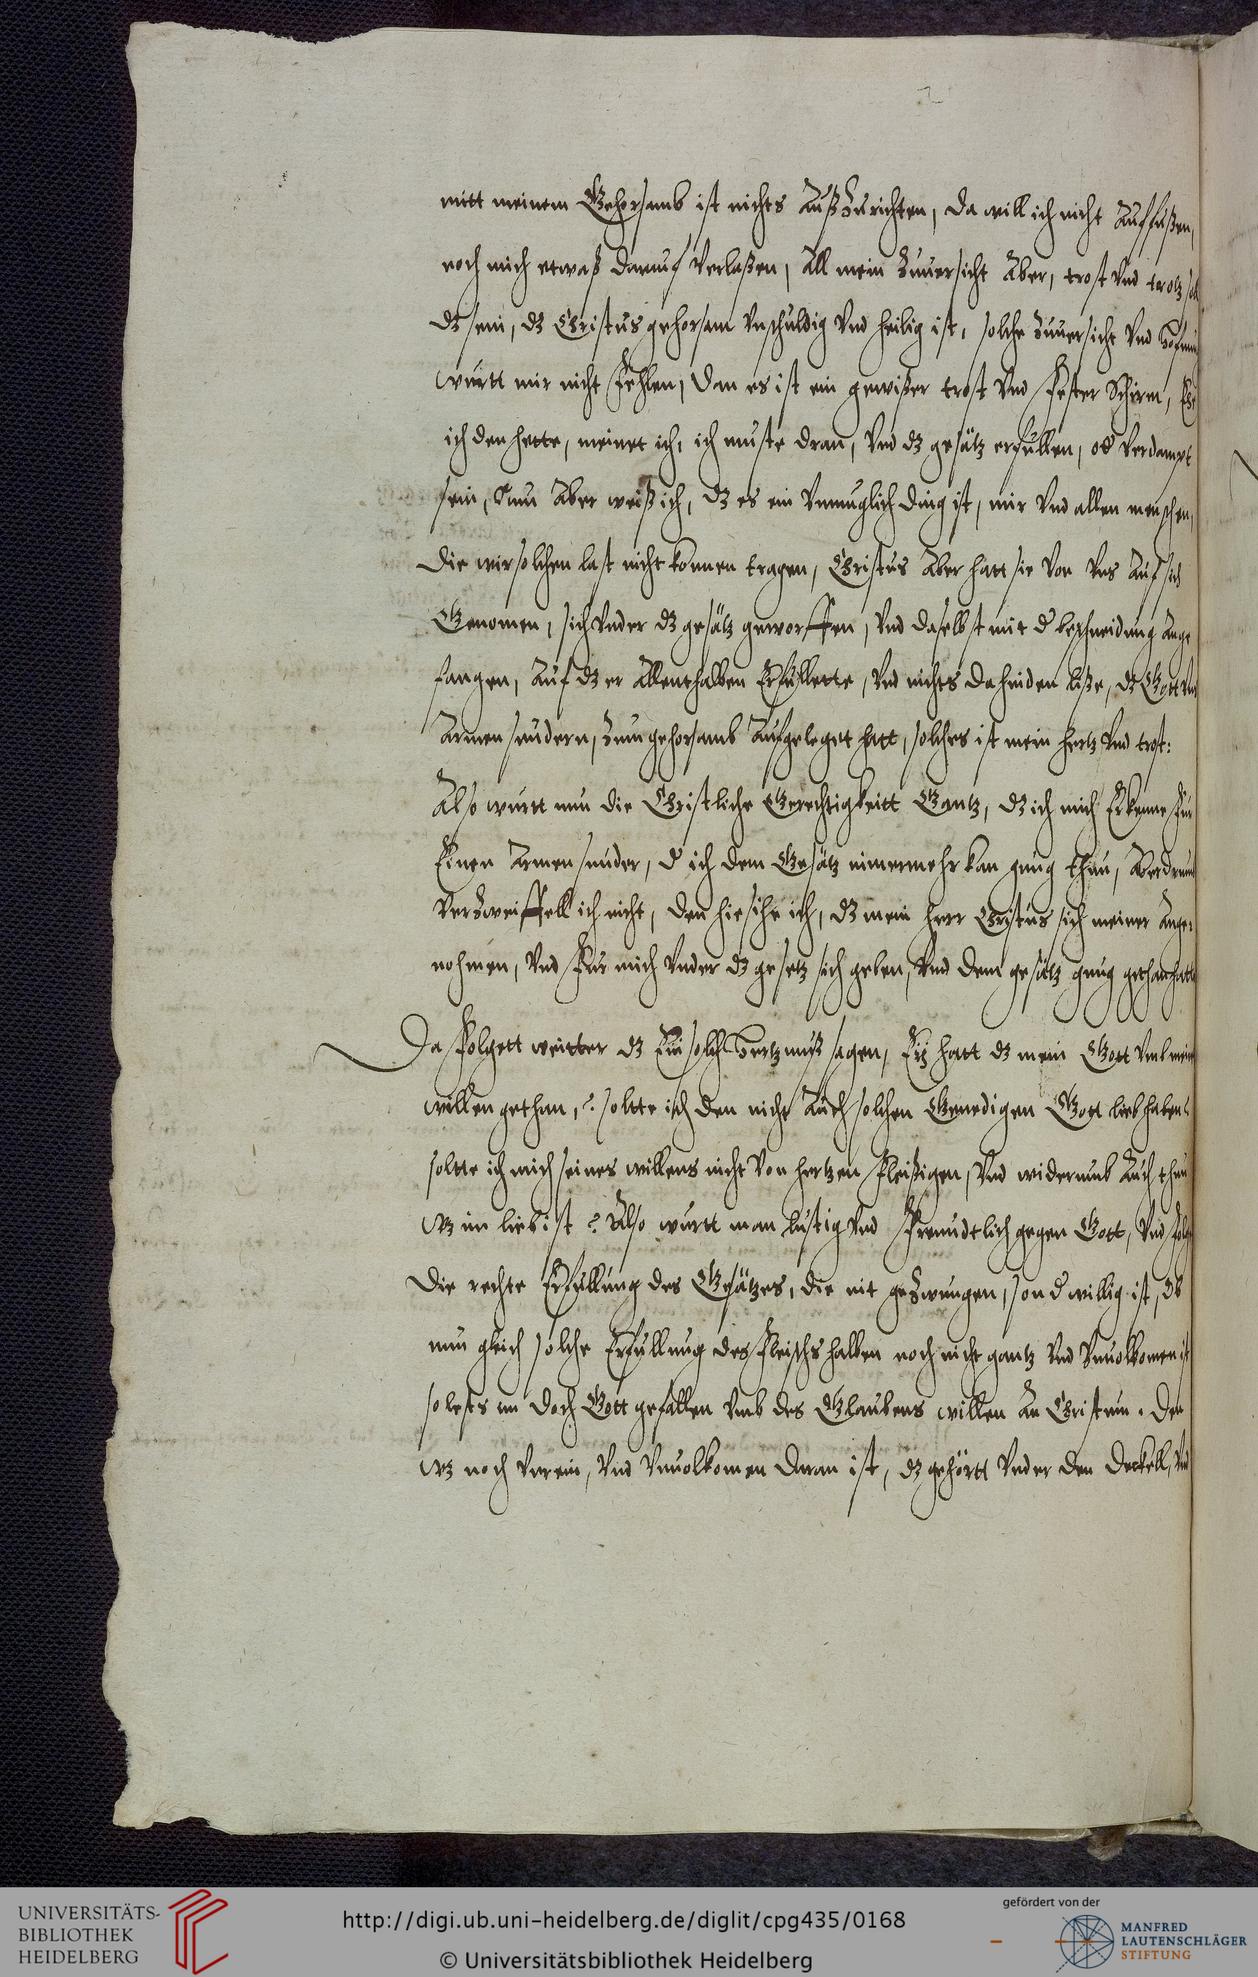 mitt meinem Gehorsamb ist nichts Außzurichten, da will ich nicht Auffußen,
noch mich etwaß darauf Verlaßen, All mein Zuuersicht Aber, trost Vnd trotz sol
dz sein, dz Christus gehorsam Vnschuldig Vnd heilig ist, solche Zuuersicht Vnd Hofnung
wurtt mir nicht Fehlen, dan es ist ein gewißer trost Vnd Fester Schirm, Ehe
ich den hette, meinet ich, ich muste dran, Vnd dz gesätz erfullen, od Verdampt
sein, Nun Aber weiß ich, dz es ein Vnmuglich ding ist, mir Vnd allen menschen,
die wir solchen last nicht konnen tragen, Christus Aber hatt sie Von Vns Auf sich
Genomen, sich Vnder dz gesätz geworffen, Vnd daselbst mit d beschneidung Ange
fangen, Auf dz er Allenthalben Erfullette, Vnd nichts dahinden liße, dz Gott Vns
Armen sundern, Zum gehorsamb Aufgeleget hatt, solches ist mein hertz Vnd trost:
Also wurtt nun die Christliche Gerechtigkeitt Gantz, dz ich mich Erkenne Fur
Einen Armen sunder, d ich dem Gesätz nimermehr kan gnug thun, Aber drumb
Verzweiffell ich nicht, den hie sihe ich, dz mein herr Christus sich meiner Ange-
nohmen, Vnd Fur mich Vnder dz gesetz sich geben, Vnd dem gesätz gnug gethan hatt
Da Folgett weitter dz Ein solch Hertz muß sagen, Eÿ hatt dz mein Gott Vmb meint
willen gethan,? soltte ich den nicht Auch solchen Genedigen Gott lieb haben?
soltte ich mich seines willens nicht Von hertzen Fleißigen, Vnd widerumb Auch thun
wz im lieb ist? Also wurtt man lustig Vnd Freundtlich gegen Gott, Vnd Folgt
die rechte Erfullung des Gesätzes, die nit gezwungen, son d willig ist, Ob
nun gleich solche Erfullung des Fleischs halben noch nicht gantz Vnd Vnuolkomen ist
so lests im doch Gott gefallen Vmb des Glaubens willen An Christum. Den
wz noch Vnrein, Vnd Vnuolkomen daran ist, dz gehörtt Vnder den deckell, Vnd
UNIVERSITÄTS-
BIBLIOTHEK
HEIDELBERG
http://digi.ub.uni-heidelberg.de/diglit/cpg435/0168
© Universitätsbibliothek Heidelberg
gefördert von der
MANFRED
LAUTENSCHLÄGER
STIFTUNG